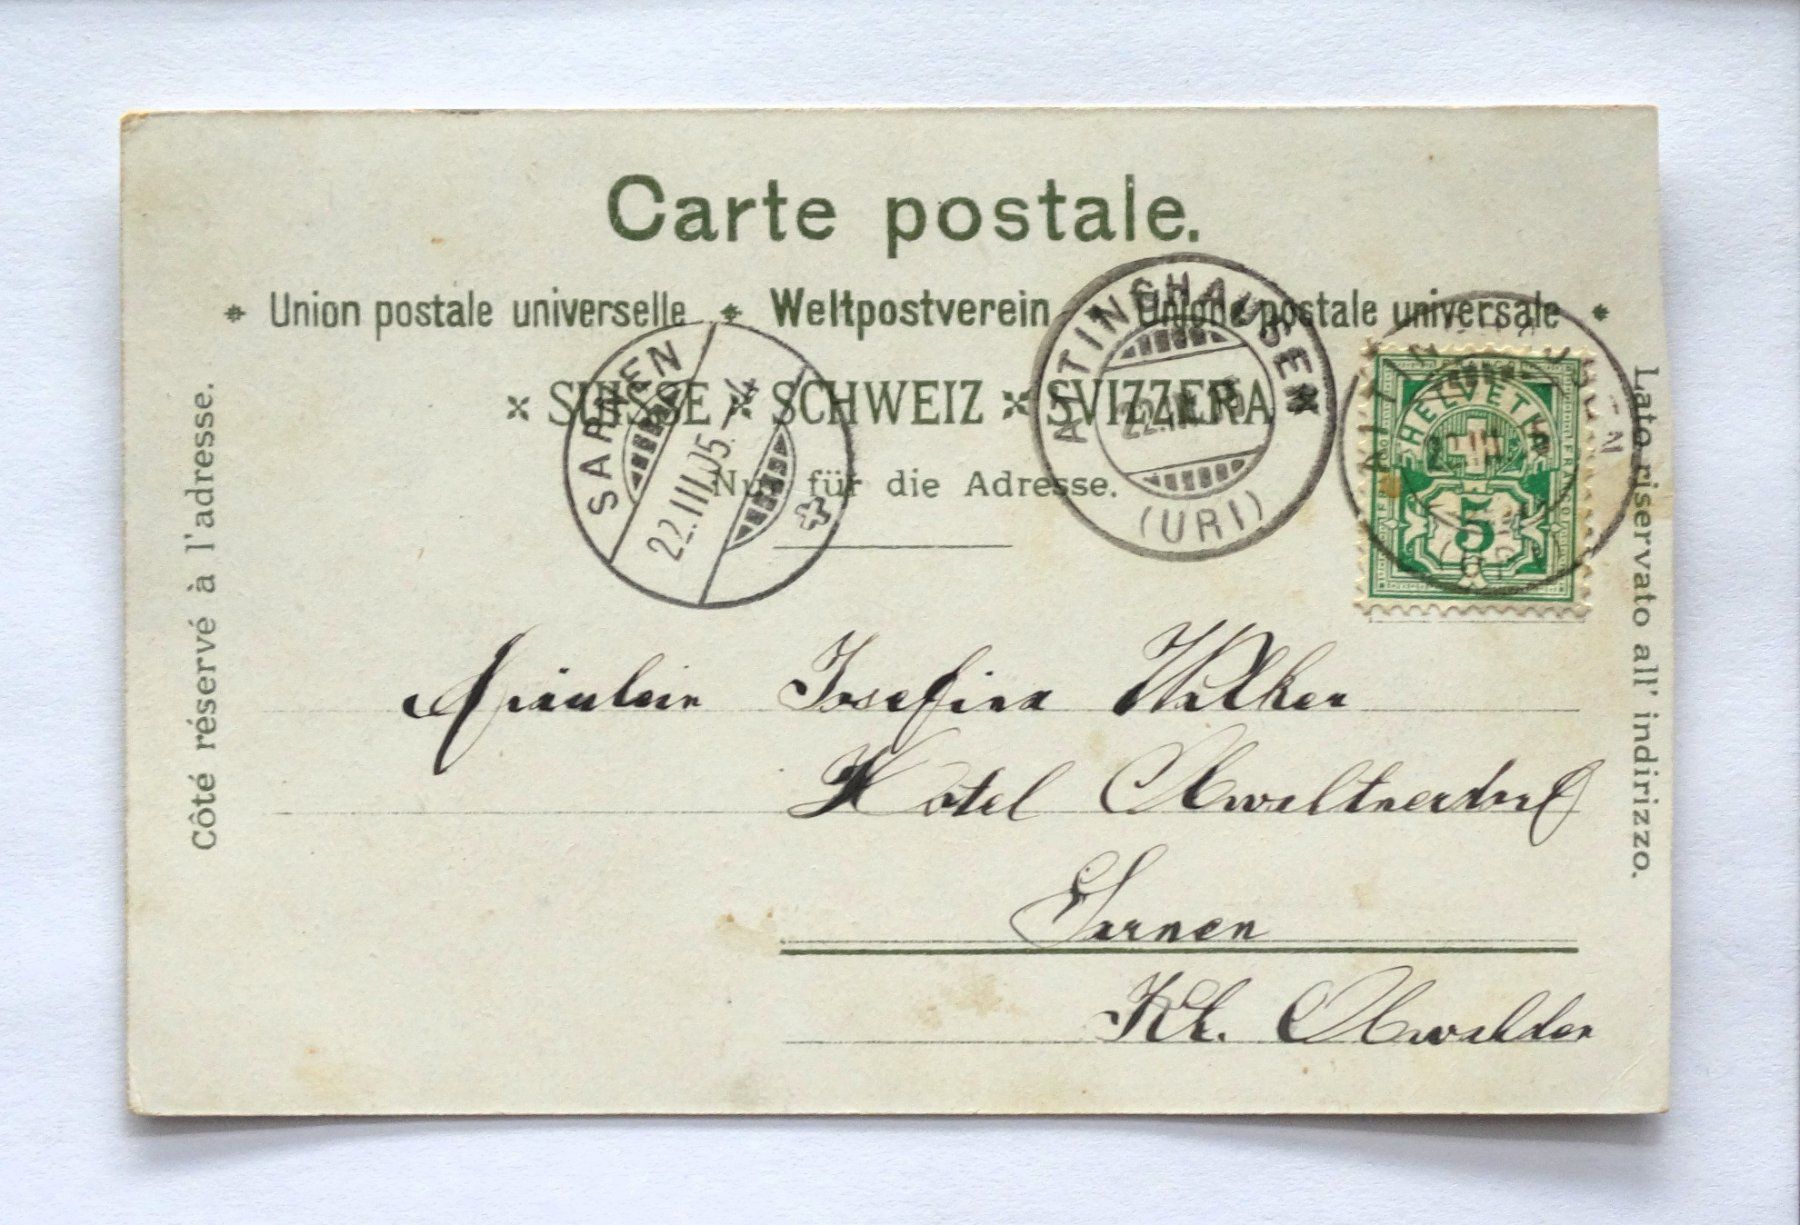 Carte postale.
Union postale universelle Weltpostverein Unione postale universale
SUISSE SCHWEIZ SVIZZERA
Nur für die Adresse.
Côté réservé à l'adresse.
Lato riservato all' indirizzo.
SARNEN
22.III.05.-4
ALTINGHAUSEN
22.III.05
(URI)
HELVETIA
FRANCO
5
Fräulein Josefina Walker
Hotel
Sarnen
Kt. Obwalden